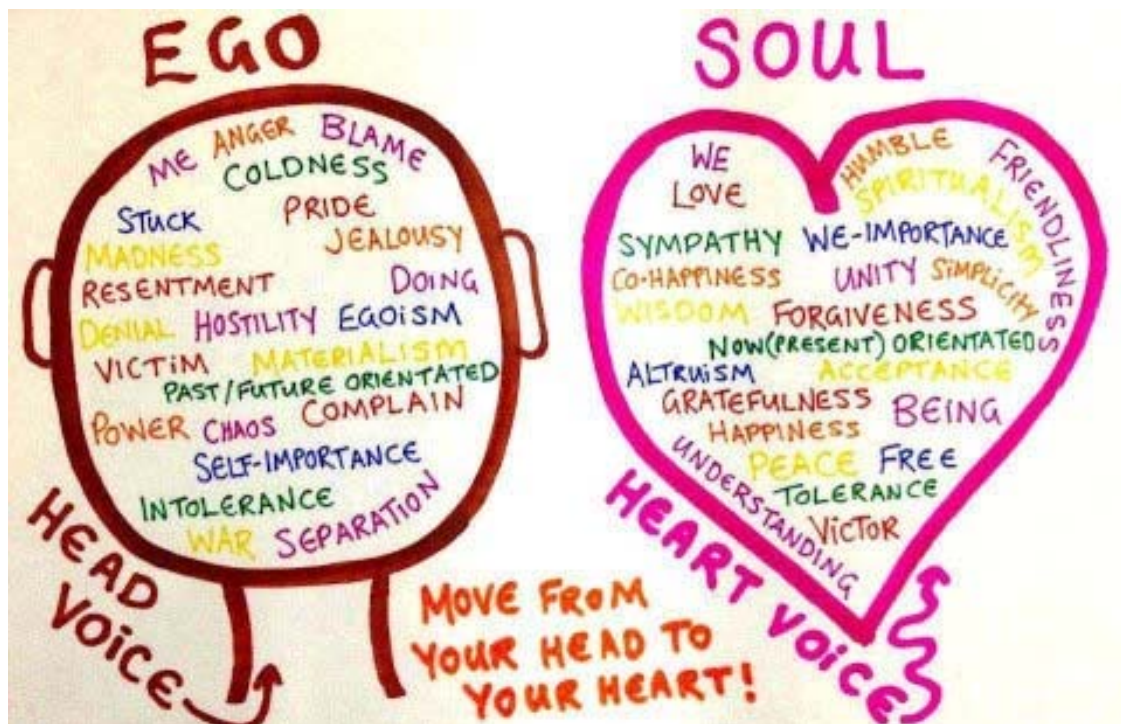 EGO
ME ANGER BLAME
COLDNESS
STUCK PRIDE
MADNESS JEALOUSY
RESENTMENT DOING
DENIAL HOSTILITY EGOiSM
VICTiM MATERIALISM
PAST/FUTURE ORIENTATED
POWER CHAOS COMPLAIN
SELF-IMPORTANCE
INTOLERANCE
WAR SEPARATION
HEAD
VOiCE
MOVE FROM
YOUR HEAD TO
YOUR HEART!
SOUL
WE HUMBLE FRIENDLINESS
LOVE SPIRITUALISM
SYMPATHY WE-IMPORTANCE
CO-HAPPINESS UNITY SiMPLiCiTY
WISDOM FORGIVENESS
NOW(PRESENT) ORIENTATED
ALTRUiSM ACCEPTANCE
GRATEFULNESS BEING
HAPPINESS
PEACE FREE
UNDERSTANDING TOLERANCE
VICTOR
HEART VOiCE